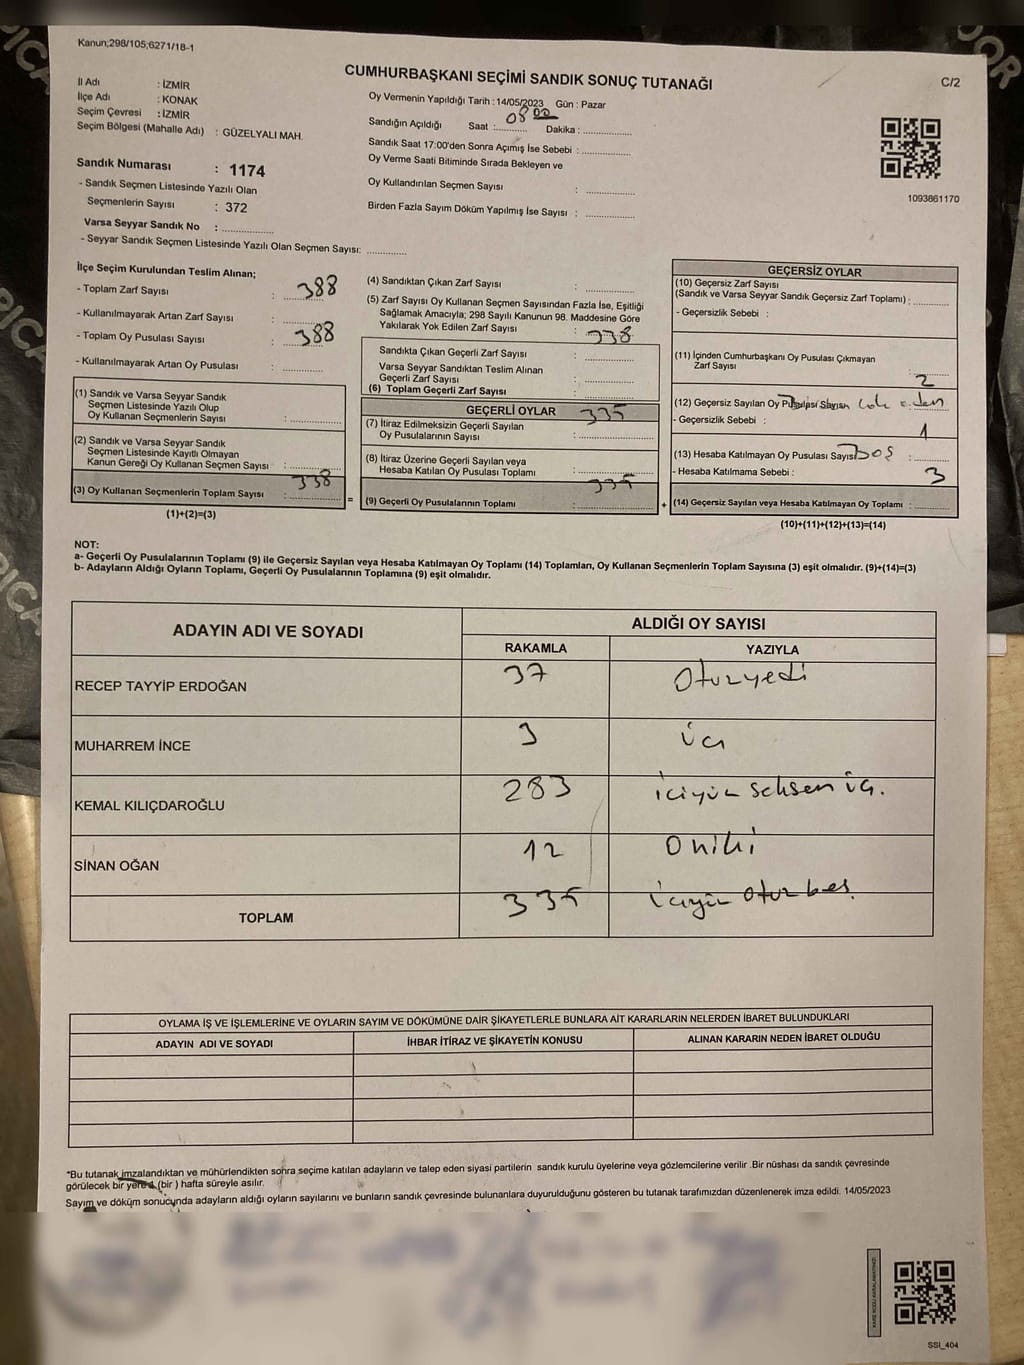 Kanun;298/105;6271/18-1
CUMHURBAŞKANI SEÇİMİ SANDIK SONUÇ TUTANAĞI
C/2
İl Adı : İZMİR
İlçe Adı : KONAK
Seçim Çevresi : İZMİR
Seçim Bölgesi (Mahalle Adı) : GÜZELYALI MAH.
Sandık Numarası : 1174
- Sandık Seçmen Listesinde Yazılı Olan
Seçmenlerin Sayısı : 372
Varsa Seyyar Sandık No :
- Seyyar Sandık Seçmen Listesinde Yazılı Olan Seçmen Sayısı:
Oy Vermenin Yapıldığı Tarih : 14/05/2023 Gün : Pazar
Sandığın Açıldığı Saat : 08 00 Dakika :
Sandık Saat 17:00'den Sonra Açımış İse Sebebi :
Oy Verme Saati Bitiminde Sırada Bekleyen ve
Oy Kullandırılan Seçmen Sayısı :
Birden Fazla Sayım Döküm Yapılmış İse Sayısı :
1093861170
İlçe Seçim Kurulundan Teslim Alınan;
- Toplam Zarf Sayısı : 388
- Kullanılmayarak Artan Zarf Sayısı :
- Toplam Oy Pusulası Sayısı : 388
- Kullanılmayarak Artan Oy Pusulası :
(1) Sandık ve Varsa Seyyar Sandık
Seçmen Listesinde Yazılı Olup
Oy Kullanan Seçmenlerin Sayısı :
(2) Sandık ve Varsa Seyyar Sandık
Seçmen Listesinde Kayıtlı Olmayan
Kanun Gereği Oy Kullanan Seçmen Sayısı :
(3) Oy Kullanan Seçmenlerin Toplam Sayısı : 338
(1)+(2)=(3)
=
(4) Sandıktan Çıkan Zarf Sayısı :
(5) Zarf Sayısı Oy Kullanan Seçmen Sayısından Fazla İse, Eşitliği
Sağlamak Amacıyla; 298 Sayılı Kanunun 98. Maddesine Göre
Yakılarak Yok Edilen Zarf Sayısı : 338
Sandıkta Çıkan Geçerli Zarf Sayısı :
Varsa Seyyar Sandıktan Teslim Alınan
Geçerli Zarf Sayısı :
(6) Toplam Geçerli Zarf Sayısı :
GEÇERLİ OYLAR 335
(7) İtiraz Edilmeksizin Geçerli Sayılan
Oy Pusulalarının Sayısı :
(8) İtiraz Üzerine Geçerli Sayılan veya
Hesaba Katılan Oy Pusulası Toplamı :
335
(9) Geçerli Oy Pusulalarının Toplamı :
+
GEÇERSİZ OYLAR
(10) Geçersiz Zarf Sayısı
(Sandık ve Varsa Seyyar Sandık Geçersiz Zarf Toplamı) :
- Geçersizlik Sebebi :
(11) İçinden Cumhurbaşkanı Oy Pusulası Çıkmayan
Zarf Sayısı :
2
(12) Geçersiz Sayılan Oy Pusulası Sayısı
- Geçersizlik Sebebi :
1
(13) Hesaba Katılmayan Oy Pusulası Sayısı Boş :
- Hesaba Katılmama Sebebi : 3
(14) Geçersiz Sayılan veya Hesaba Katılmayan Oy Toplamı :
(10)+(11)+(12)+(13)=(14)
NOT:
a- Geçerli Oy Pusulalarının Toplamı (9) ile Geçersiz Sayılan veya Hesaba Katılmayan Oy Toplamı (14) Toplamları, Oy Kullanan Seçmenlerin Toplam Sayısına (3) eşit olmalıdır. (9)+(14)=(3)
b- Adayların Aldığı Oyların Toplamı, Geçerli Oy Pusulalarının Toplamına (9) eşit olmalıdır.
ADAYIN ADI VE SOYADI
ALDIĞI OY SAYISI
RAKAMLA YAZIYLA
RECEP TAYYİP ERDOĞAN 37 Otuzyedi
MUHARREM İNCE 3 üç
KEMAL KILIÇDAROĞLU 283 ikiyüz seksen üç.
SİNAN OĞAN 12 Oniki
TOPLAM 335 üçyüz otuz beş
OYLAMA İŞ VE İŞLEMLERİNE VE OYLARIN SAYIM VE DÖKÜMÜNE DAİR ŞİKAYETLERLE BUNLARA AİT KARARLARIN NELERDEN İBARET BULUNDUKLARI
ADAYIN ADI VE SOYADI İHBAR İTİRAZ VE ŞİKAYETİN KONUSU ALINAN KARARIN NEDEN İBARET OLDUĞU
*Bu tutanak imzalandıktan ve mühürlendikten sonra seçime katılan adayların ve talep eden siyasi partilerin sandık kurulu üyelerine veya gözlemcilerine verilir .Bir nüshası da sandık çevresinde
görülecek bir yere 1 (bir ) hafta süreyle asılır.
Sayım ve döküm sonucunda adayların aldığı oyların sayılarını ve bunların sandık çevresinde bulunanlara duyurulduğunu gösteren bu tutanak tarafımızdan düzenlenerek imza edildi. 14/05/2023
SSI_404